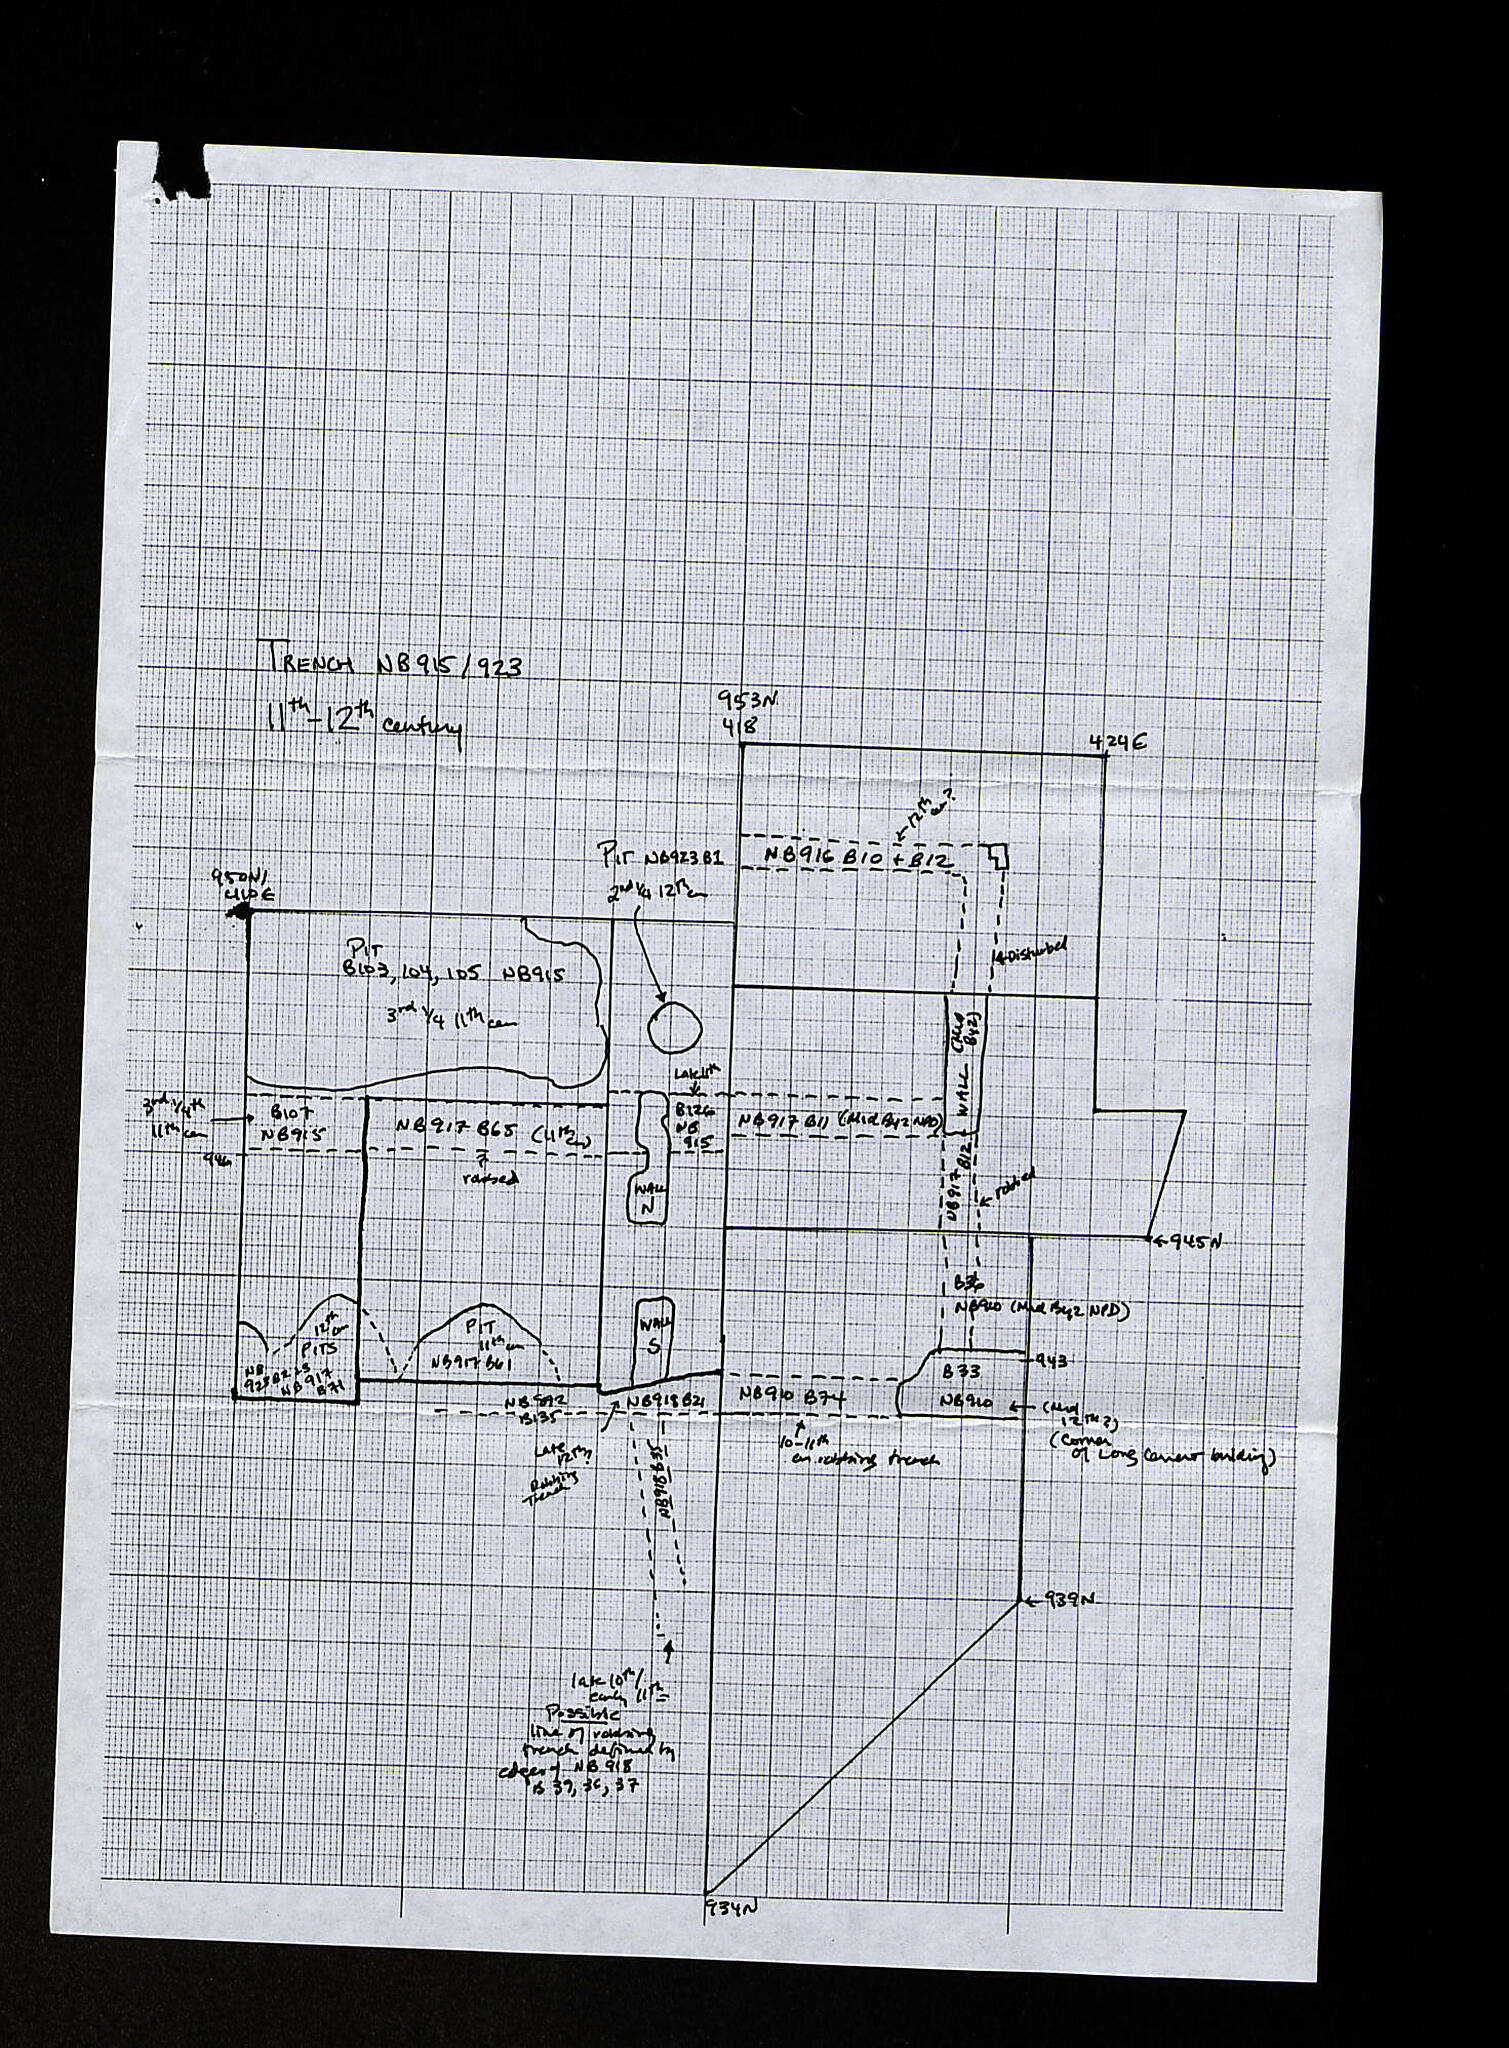 TRENCH NB915/923
11th-12th century
953N
418
424E
12th cen?
NB916 B10 + B12
PIT NB923B1
2nd 1/4 12th cen
950N/
410E
PIT
B103, 104, 105 NB915
3rd 1/4 11th cen
← Disturbed
WALL (Mid Byz)
Late 11th
3rd 1/4th
11th cen
B107
NB915
NB917 B65 (11th cen)
B126
NB
915
NB917 B11 (Mid Byz NPD)
946
robbed
WALL
N
NB917 B12
← robbed
← 945N
B36
NB910 (Mid Byz NPD)
12th
cen
PITS
PIT
11th cen
NB917 B61
WALL
S
NB
925B2
NB917
B71
943
B33
NB910
← (Mid
12th?)
(Corner
of Long Cement building)
NB892
B135
NB918B21
NB910 B74
Late
12th?
Robbing
Trench
10-11th
cen robbing trench
NB918 B35
← 939N
late 10th/
early 11th
Possible
line of robbing
trench defined by
edge of NB 918
B 39, 36, 37
934N